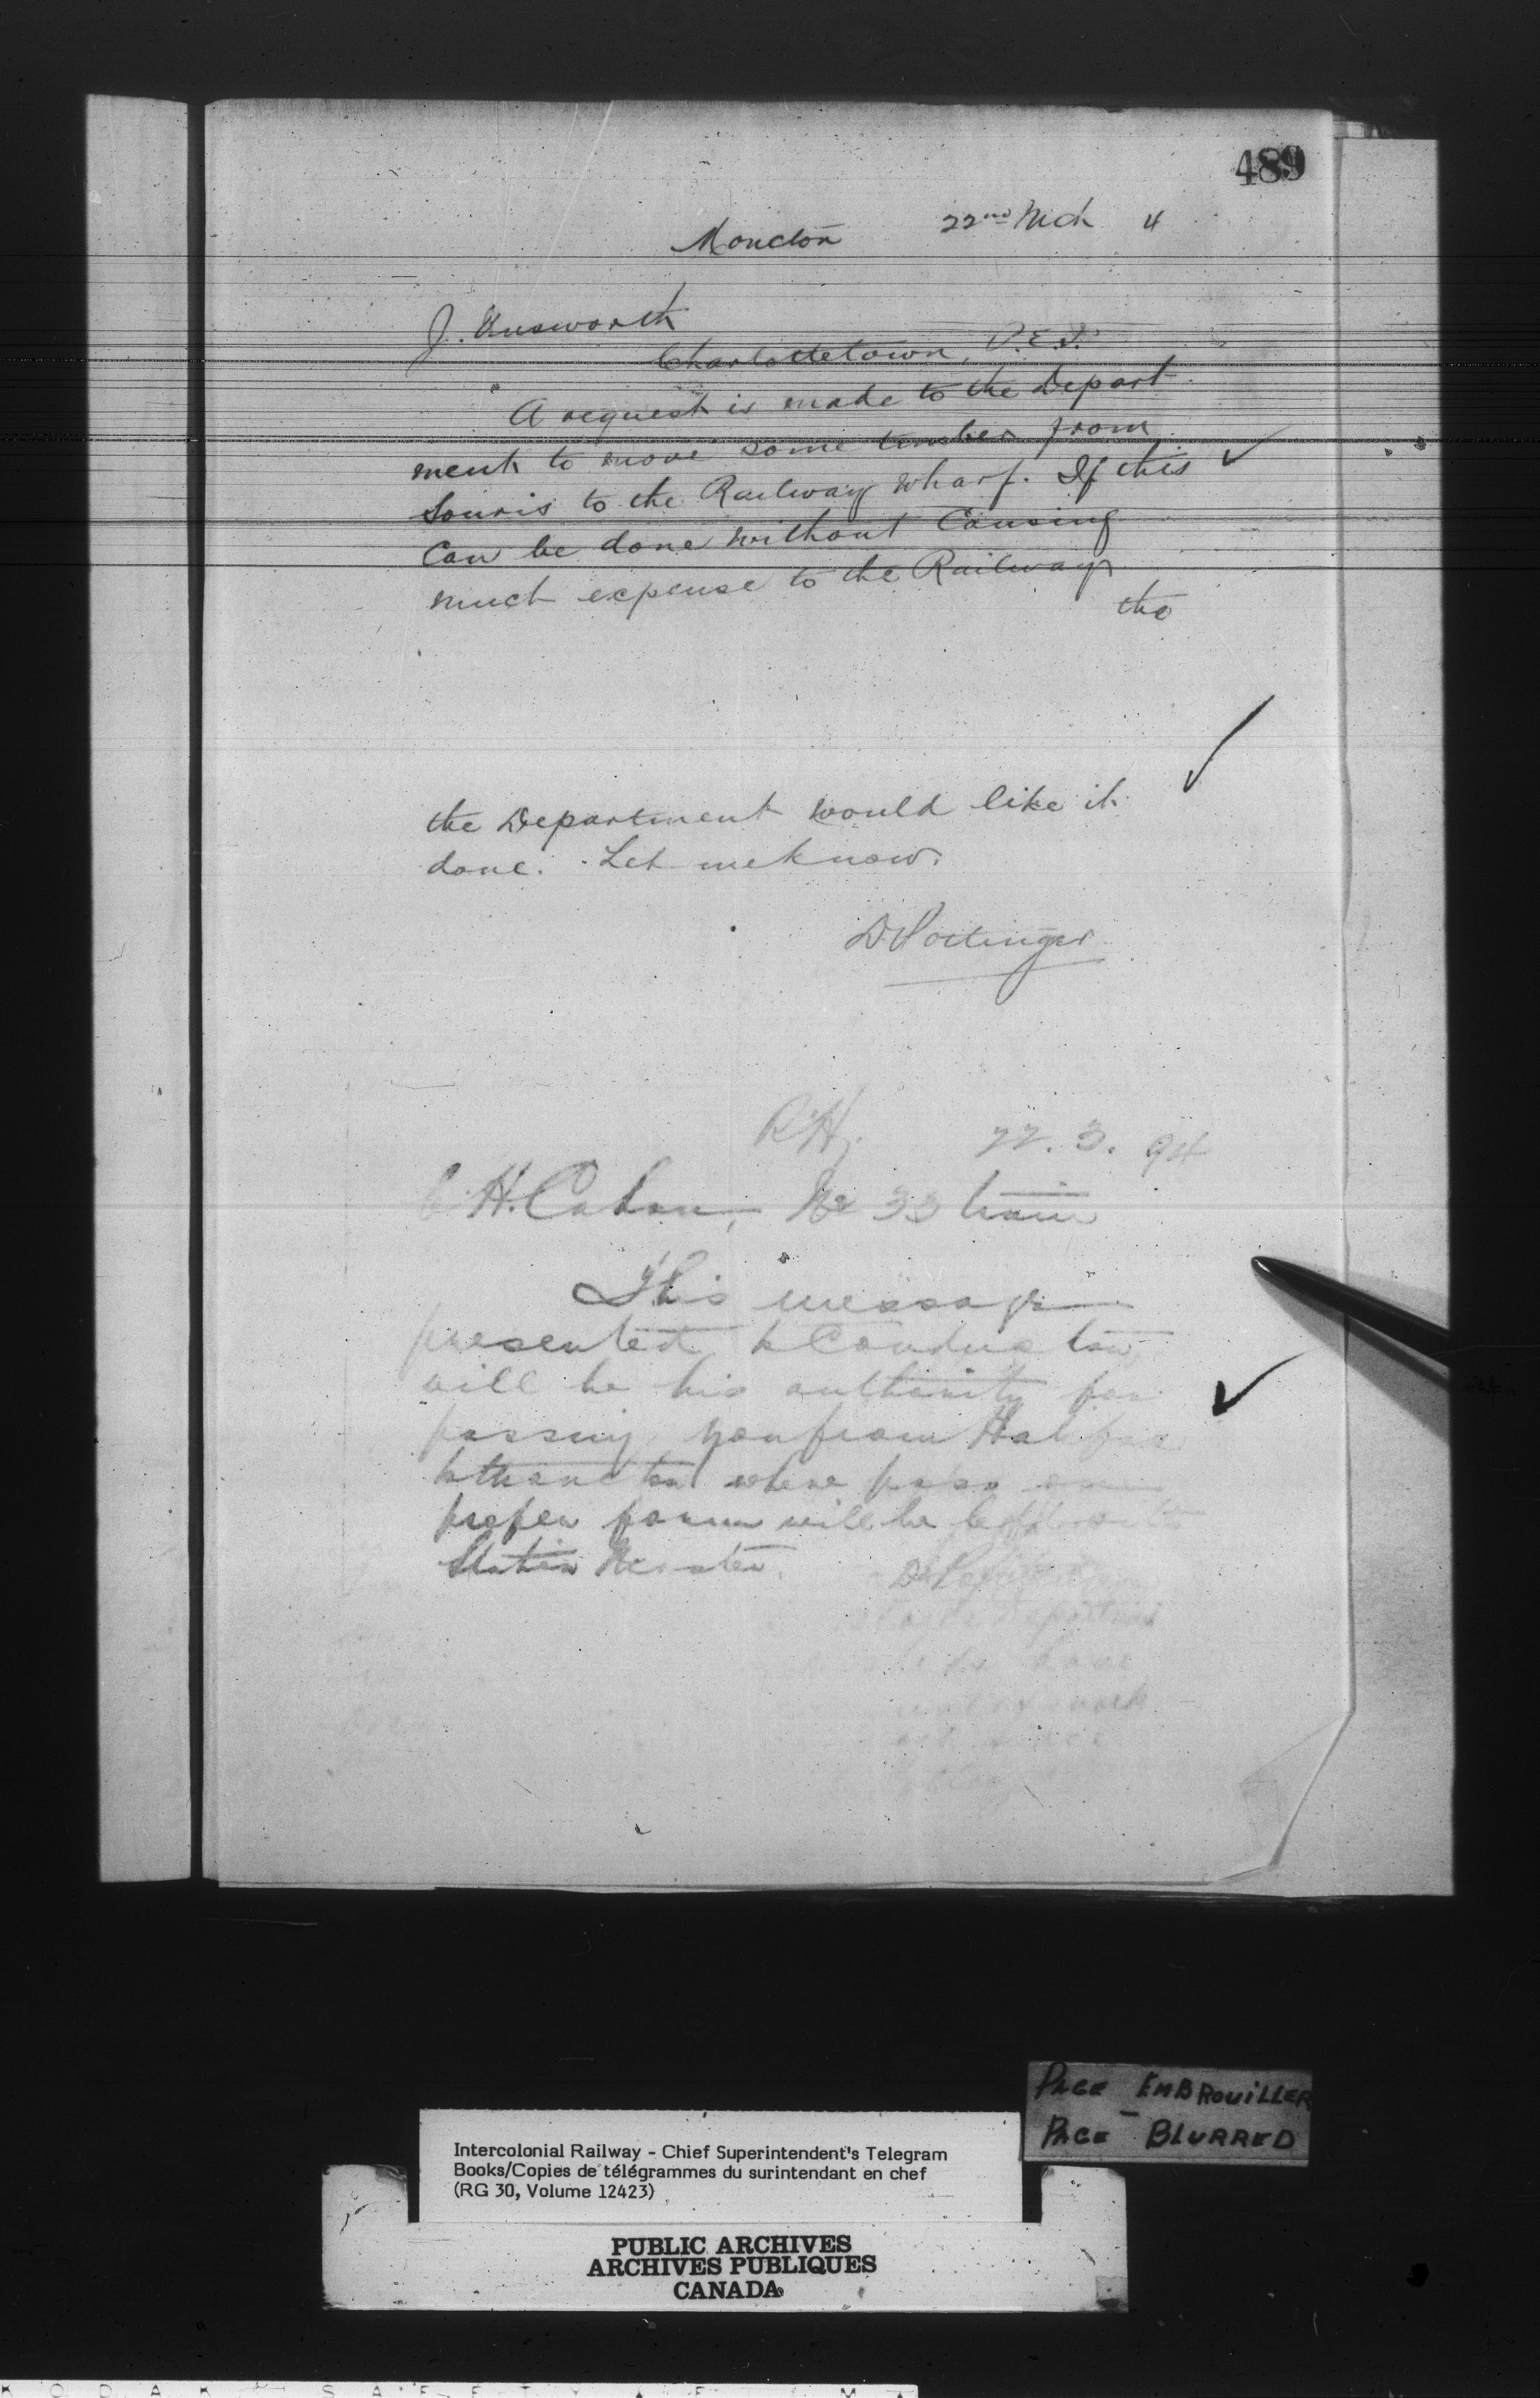 489
Moncton 22nd Mch 4
J. Unsworth
Charlottetown, P.E.I.
A request is made to the Depart
ment to move some timber from
Souris to the Railway wharf. If this
Can be done without Causing
much expense to the Railway
the
the Department would like it
done. Let me know.
D Pottinger
RH. 22. 3. 94
C.H. Cahan, No 33 train
This message
presented to Conductor
will be his authority for
passing you from Halifax
to Moncton where pass on
proper form will be left with
Station Master.
PAGE EMBROUILLER
PAGE - BLURRED
Intercolonial Railway - Chief Superintendent's Telegram
Books/Copies de télégrammes du surintendant en chef
(RG 30, Volume 12423)
PUBLIC ARCHIVES
ARCHIVES PUBLIQUES
CANADA
KODAK SAFETY